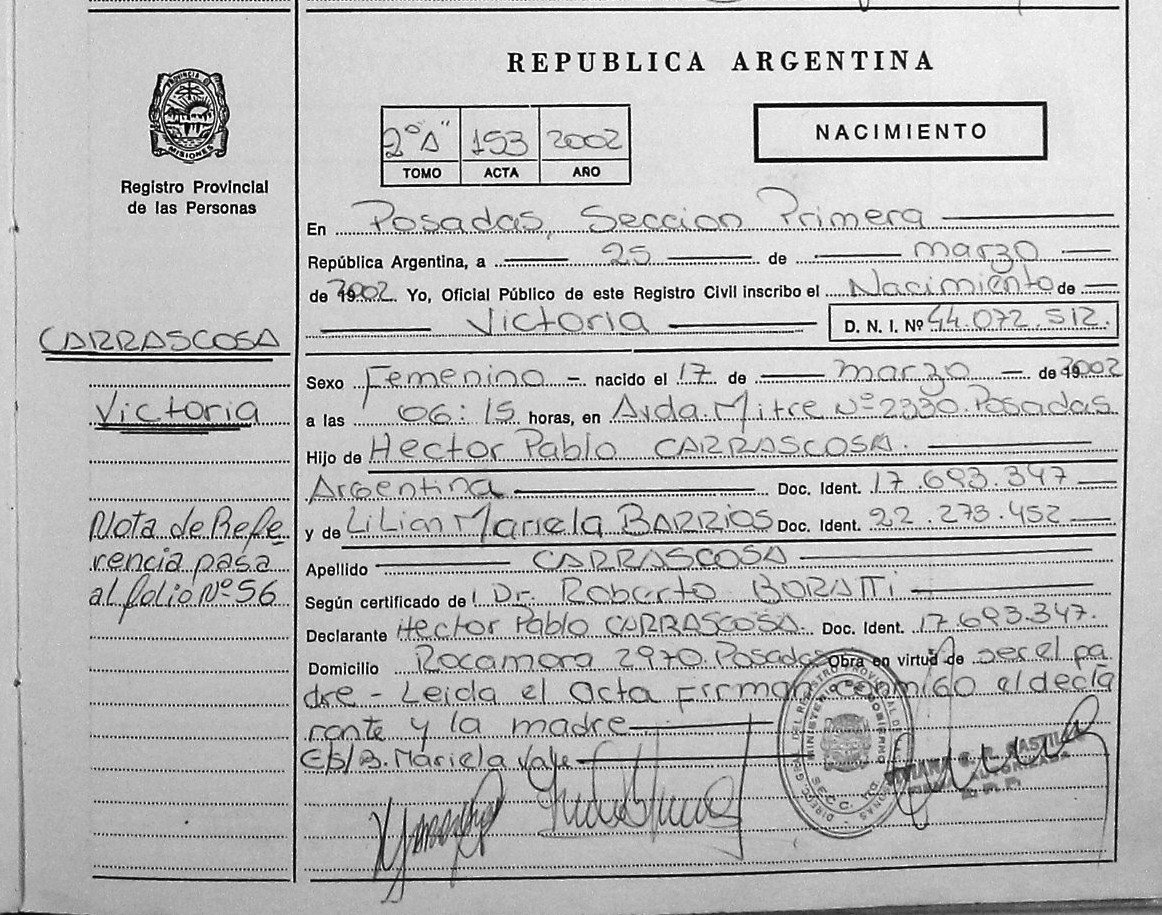 REPUBLICA ARGENTINA
PROVINCIA D
MISIONES
Registro Provincial
de las Personas
2º "A" 153 2002
TOMO ACTA AÑO
NACIMIENTO
En Posadas, Seccion Primera
República Argentina, a 25 de marzo
de 2002. Yo, Oficial Público de este Registro Civil inscribo el Nacimiento de
Victoria D. N. I. Nº 44.072.512.
CARRASCOSA
Victoria
Nota de Refe
rencia pasa
al folio Nº 56
Sexo Femenino - nacido el 17 de marzo de 2002
a las 06:15 horas, en Avda. Mitre Nº 2330. Posadas
Hijo de Hector Pablo CARRASCOSA.
Argentina Doc. Ident. 17.693.347
y de Lilian Mariela BARRIOS Doc. Ident. 22.273.452
Apellido CARRASCOSA
Según certificado del Dr. Roberto BORATTI
Declarante Hector Pablo CARRASCOSA. Doc. Ident. 17.693.347.
Domicilio Rocamora 2970. Posadas Obra en virtud de ser el pa
dre - Leida el acta Firman conmigo el decla
rante y la madre
E/s/B. Mariela